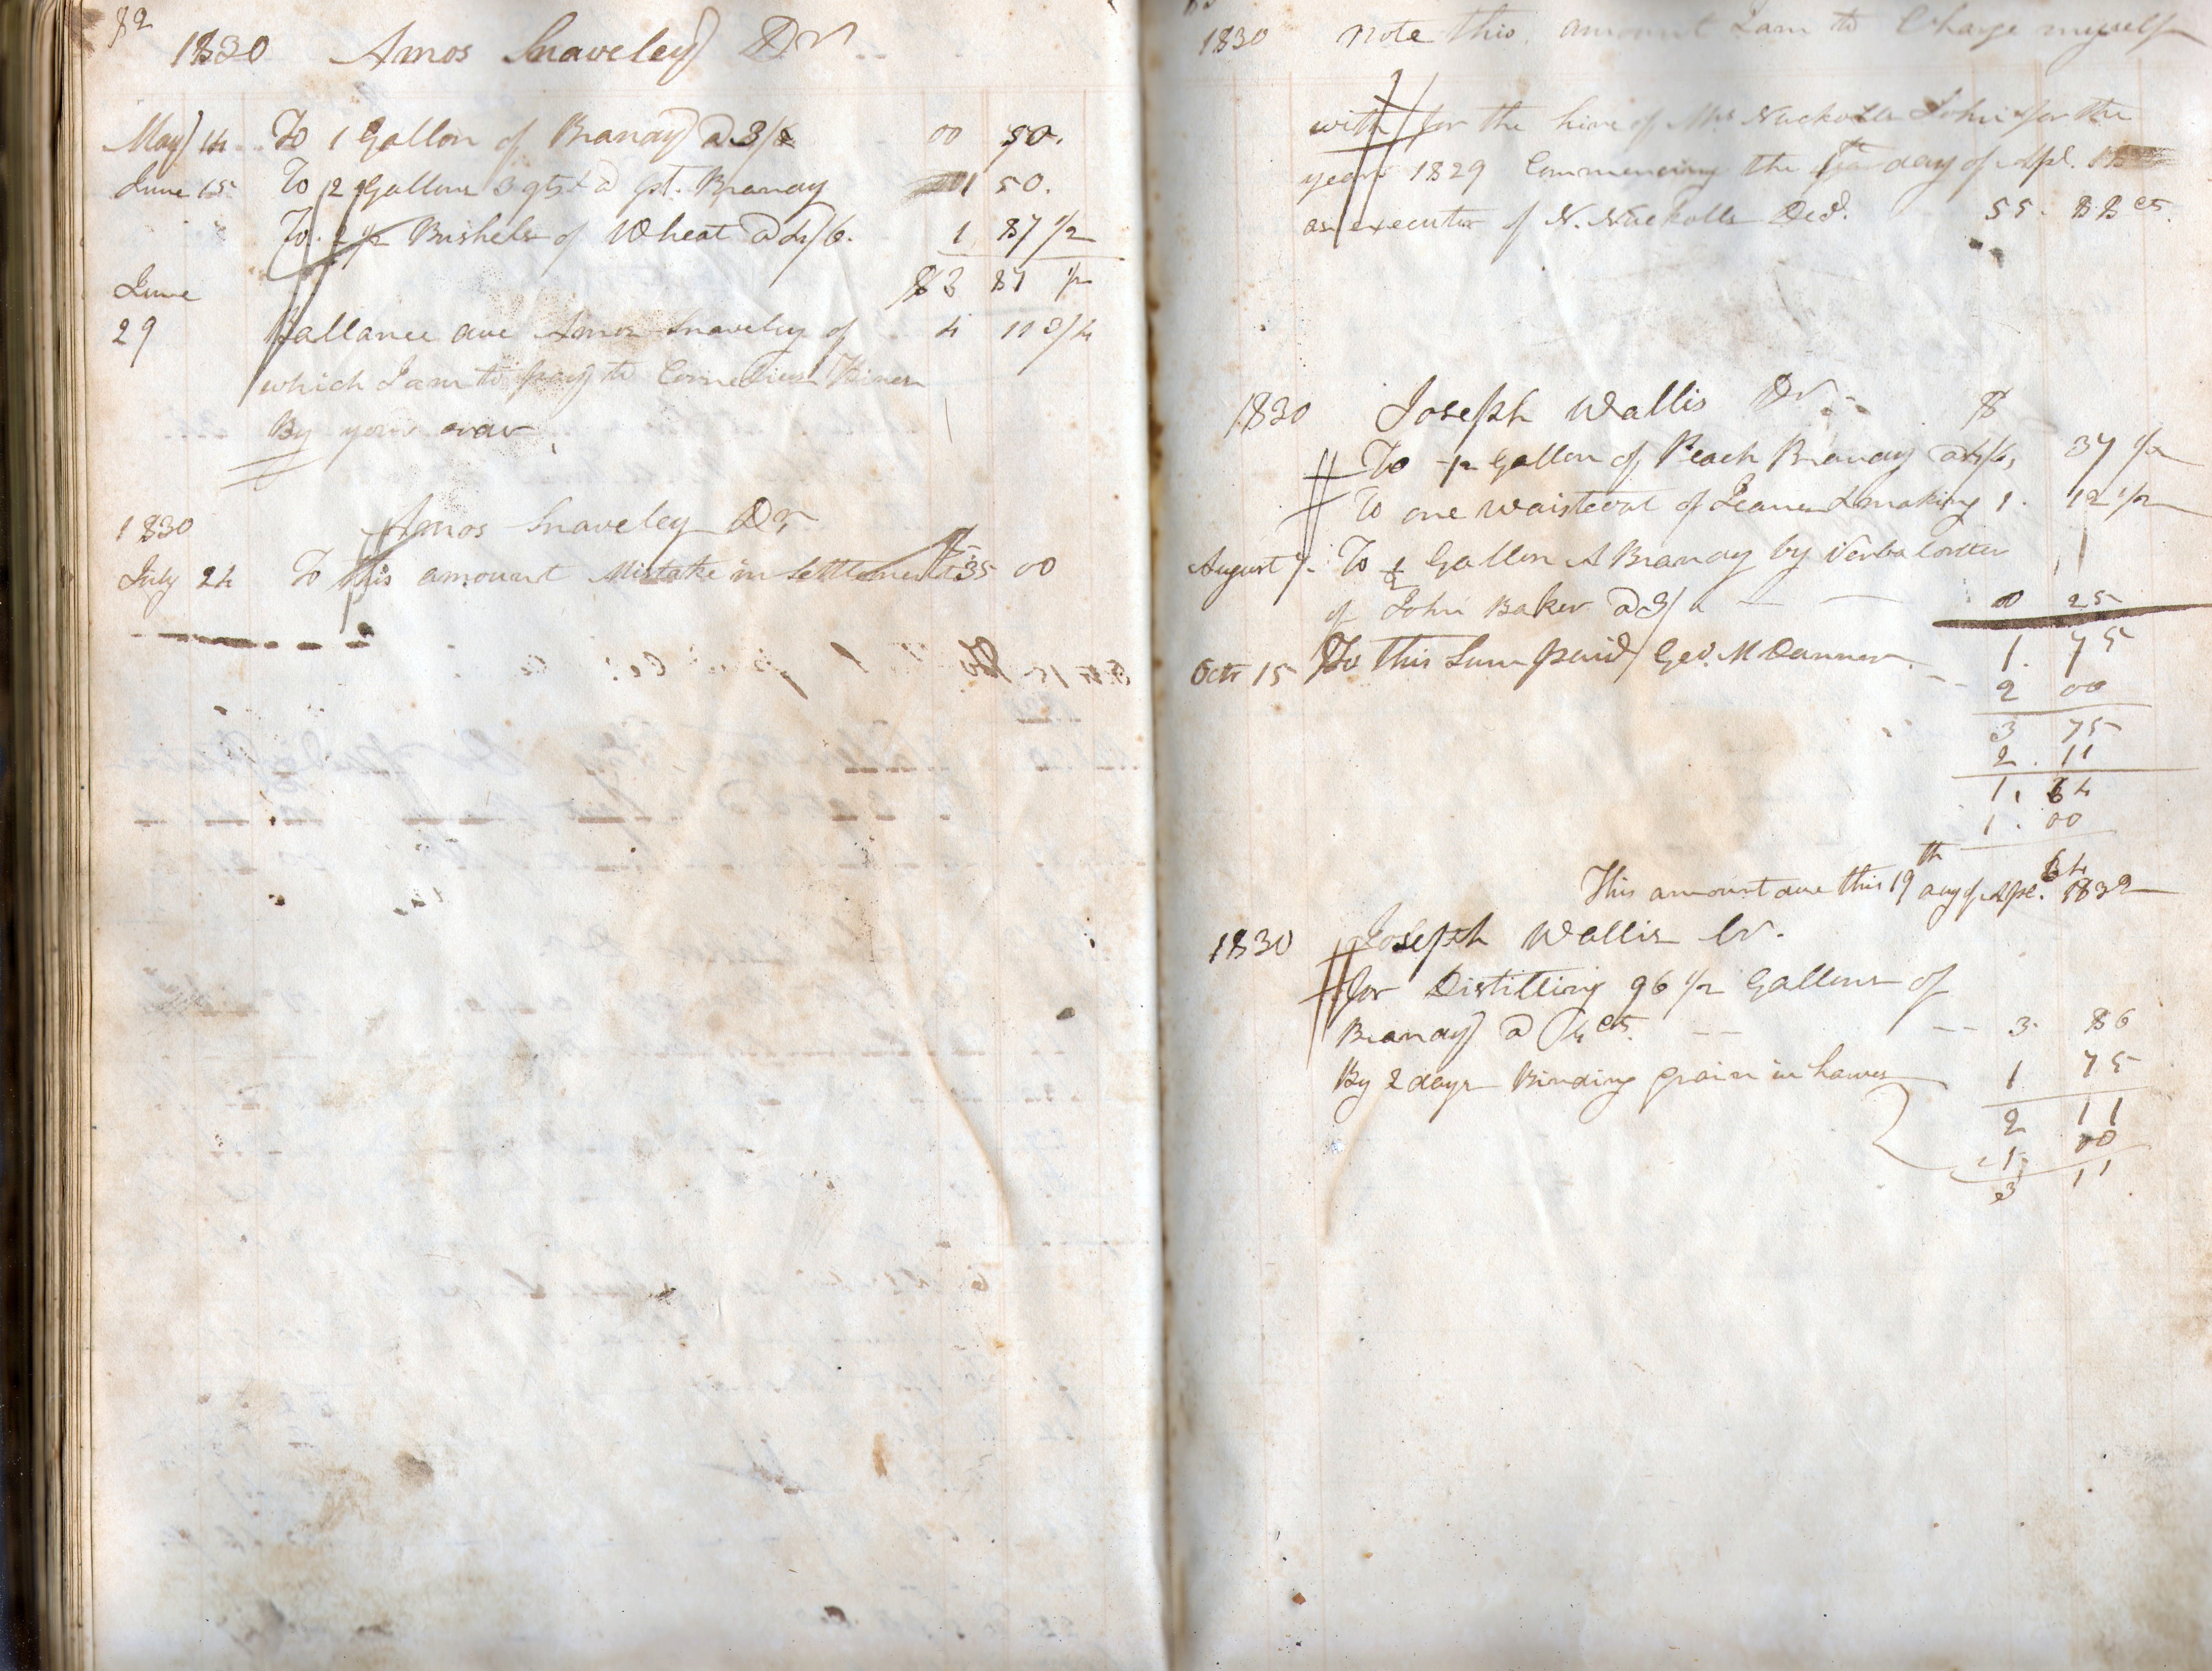 82
1830 Amos Snaveley Dr
May 14 To 1 Gallon of Branay a 3/ 00 50.
June 15 To 2 Gallons 3 qts & a pt. Branay 1 50.
To 2 1/2 Bushels of Wheat a 4/6. 1 87 1/2
$3 87 1/2
June
29 Ballance due Amos Snaveley of 4 11 3/4
which I am to pay to Cornelius
By your order
1830 Amos Snaveley Dr
July 24 To this amount Mistake in Settlement $35 00
1830 Note this amount I am to Charge myself
with for the hire of Mrs Nuckolls John for the
year 1829 Commencing the day of Apl.
as executor of N. Nuckolls Decd. 55. 88 cts.
1830 Joseph Wallis Dr. $
To 1/2 Gallon of Peach Branay a 4/6, 37 1/2
To one Waistcoat of & making 1. 12 1/2
August 7. To 1/2 Gallon A Branay by Verbal order
of John Baker a 3/ 00 25
1. 75
Octr 15 To this Sum paid Geo. M Danner 2 00
3 75
2. 11
1. 64
1. 00
64
This amount due this 19th day of Apl. 1832
1830 Joseph Wallis Cr.
for Distilling 96 1/2 Gallons of
Branay a 4 cts. 3. 86
By 2 days Binding grain in harvest 1 75
2 11
1. 00
3 11